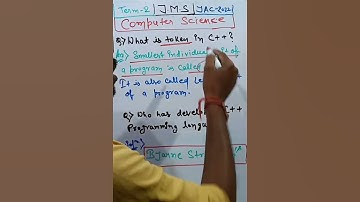 Term-2 | J.M.S | JAC-2022
Computer Science
Q.> What is taken in C++?
Ans> Smallest individual of
a program is called
It is also called Le
of a program.
Q.> Who has develop C++
Programming langu
Bjarne Str